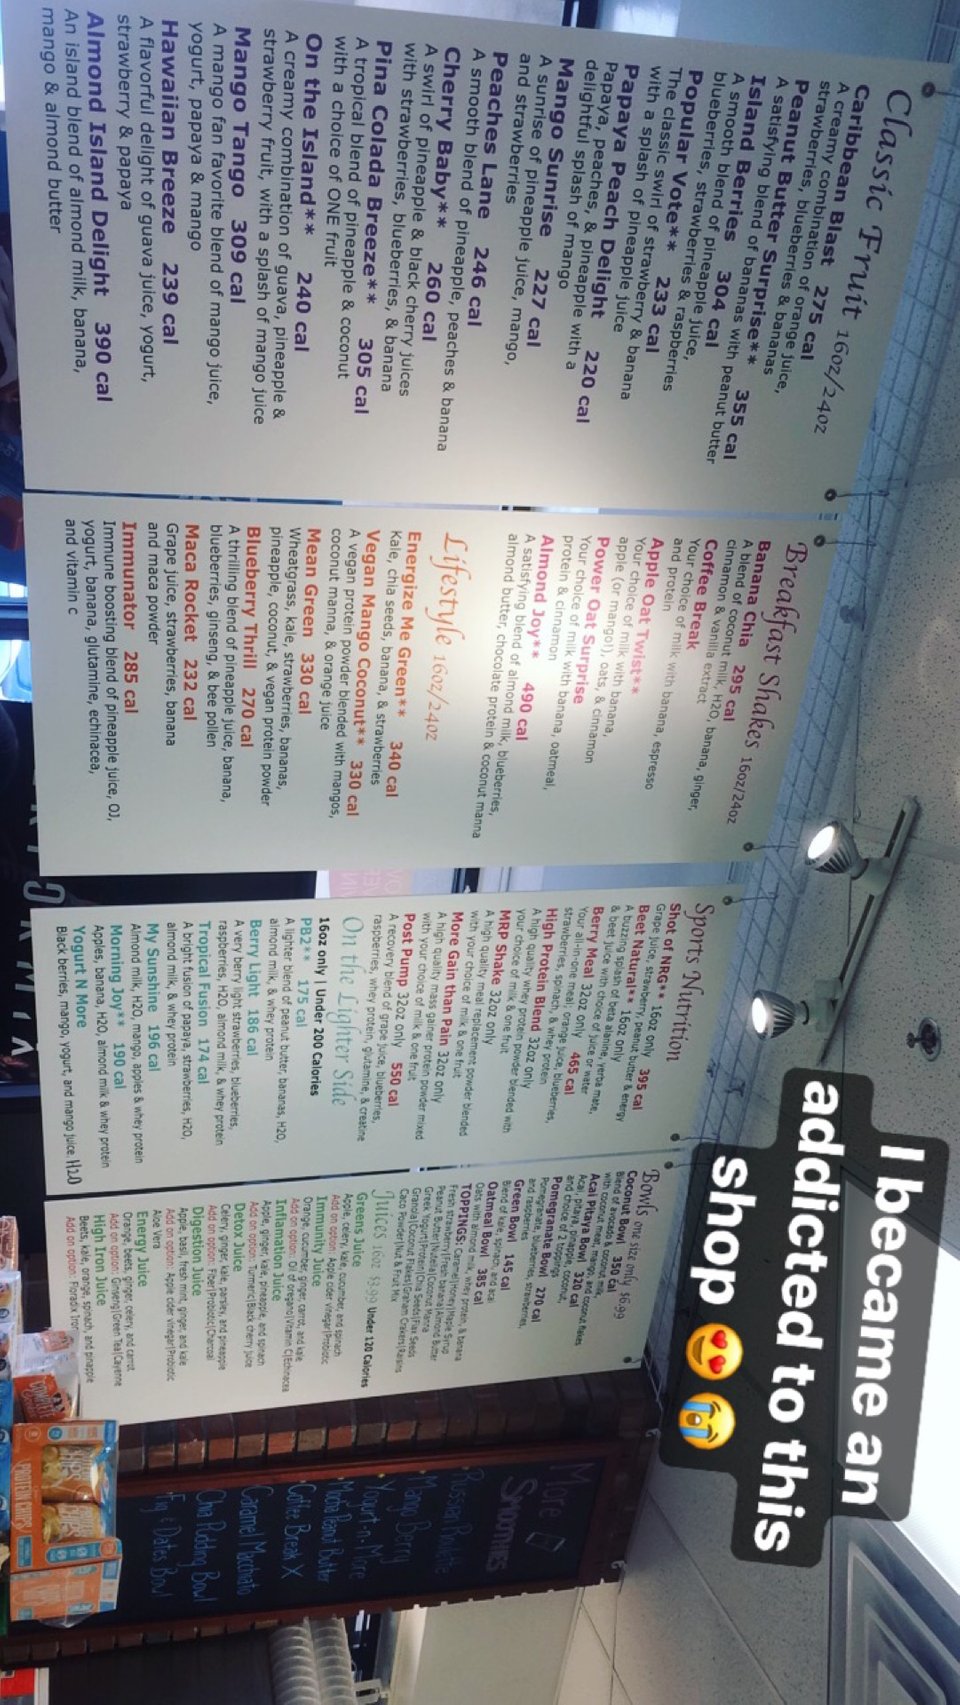 Classic Fruit 16oz/24oz
Caribbean Blast 275 cal
A creamy combination of orange juice,
strawberries, blueberries & bananas
Peanut Butter Surprise** 355 cal
A satisfying blend of bananas with peanut butter
Island Berries 304 cal
A smooth blend of pineapple juice,
blueberries, strawberries & raspberries
Popular Vote** 233 cal
The classic swirl of strawberry & banana
with a splash of pineapple juice
Papaya Peach Delight 220 cal
Papaya, peaches, & pineapple with a
delightful splash of mango
Mango Sunrise 227 cal
A sunrise of pineapple juice, mango,
and strawberries
Peaches Lane 246 cal
A smooth blend of pineapple, peaches & banana
Cherry Baby** 260 cal
A swirl of pineapple & black cherry juices
with strawberries, blueberries, & banana
Pina Colada Breeze** 305 cal
A tropical blend of pineapple & coconut
with a choice of ONE fruit
On the Island** 240 cal
A creamy combination of guava, pineapple &
strawberry fruit, with a splash of mango juice
Mango Tango 309 cal
A mango fan favorite blend of mango juice,
yogurt, papaya & mango
Hawaiian Breeze 239 cal
A flavorful delight of guava juice, yogurt,
strawberry & papaya
Almond Island Delight 390 cal
An island blend of almond milk, banana,
mango & almond butter
Breakfast Shakes 16oz/24oz
Banana Chia 295 cal
A blend of coconut milk, H2O, banana, ginger,
cinnamon & vanilla extract
Coffee Break
Your choice of milk with banana, espresso
and protein
Apple Oat Twist**
Your choice of milk with banana,
apple (or mango!), oats, & cinnamon
Power Oat Surprise
Your choice of milk with banana, oatmeal,
protein & cinnamon
Almond Joy** 490 cal
A satisfying blend of almond milk, blueberries,
almond butter, chocolate protein & coconut manna
Lifestyle 16oz/24oz
Energize Me Green** 340 cal
Kale, chia seeds, banana, & strawberries
Vegan Mango Coconut** 330 cal
A vegan protein powder blended with mangos,
coconut manna, & orange juice
Mean Green 330 cal
Wheatgrass, kale, strawberries, bananas,
pineapple, coconut, & vegan protein powder
Blueberry Thrill 270 cal
A thrilling blend of pineapple juice, banana,
blueberries, ginseng, & bee pollen
Maca Rocket 232 cal
Grape juice, strawberries, banana
and maca powder
Immunator 285 cal
Immune boosting blend of pineapple juice, OJ,
yogurt, banana, glutamine, echinacea,
and vitamin c
Sports Nutrition
Shot of NRG** 16oz only 395 cal
Grape juice, strawberry, peanut butter & energy
Beet Natural** 16oz only
A buzzing splash of beta alanine, yerba mate,
& beet juice with choice of juice or water
Berry Meal 32oz only 465 cal
Your all-in-one meal; orange juice, blueberries,
strawberries, spinach, & whey protein
High Protein Blend 32oz only
A high quality whey protein powder blended with
your choice of milk & one fruit
MRP Shake 32oz only
A high quality meal replacement powder blended
with your choice of milk & one fruit
More Gain than Pain 32oz only
A high quality mass gainer protein powder mixed
with your choice of milk & one fruit
Post Pump 32oz only 550 cal
A recovery blend of grape juice, blueberries,
raspberries, whey protein, glutamine, & creatine
On the Lighter Side
16oz only | Under 200 Calories
PB2** 175 cal
A lighter blend of peanut butter, bananas, H2O,
almond milk, & whey protein
Berry Light 186 cal
A very berry light strawberries, blueberries,
raspberries, H2O, almond milk, & whey protein
Tropical Fusion 174 cal
A bright fusion of papaya, strawberries, H2O,
almond milk, & whey protein
My Sunshine 196 cal
Almond milk, H2O, mango, apples & whey protein
Morning Joy** 190 cal
Apples, banana, H2O, almond milk & whey protein
Yogurt N More
Black berries, mango, yogurt, and mango juice. H2O
Bowls one size only $6.99
Coconut Bowl 350 cal
Blend of avocado & coconut milk,
with coconut meat, mango, and coconut flakes
Acai Pitaya Bowl 320 cal
Acai, pitaya, pineapple, coconut,
and choice of 2 toppings
Pomegranate Bowl 270 cal
Pomegranate, blueberries, strawberries,
and raspberries
Green Bowl 145 cal
Blend of kale, spinach, and acai
Oatmeal Bowl 385 cal
Oats with almond milk, whey protein, & banana
TOPPINGS: Caramel|Honey|Maple Syrup
Fresh strawberry|Fresh banana|Almond Butter
Peanut Butter|Nutella|Coconut Manna
Greek Yogurt|Protein|Chia Seeds|Flax Seeds
Granola|Coconut Flakes|Graham Crakers|Raisins
Caco Powder|Nut & Fruit Mix
Juices 16oz $9.99 Under 120 Calories
Greens Juice
Apple, celery, kale, cucumber, and spinach
Add on option: Apple cider vinegar|Probiotic
Immunity Juice
Orange, cucumber, ginger, carrot, and kale
Add on option: Oil of Oregano|Vitamin C|Echinacea
Inflamation Juice
Apple, ginger, kale, pineapple, and spinach
Add on option: Turmeric|Black Cherry Juice
Detox Juice
Celery, ginger, kale, parsley, and pineapple
Add on option: Fiber|Probiotic|Charcoal
Digestion Juice
Apple, basil, fresh mint, ginger, and kale
Add on option: Apple cider vinegar|Probiotic
Aloe Vera
Energy Juice
Orange, beets, ginger, celery, and carrot
Add on option: Ginseng|Green Tea|Cayenne
High Iron Juice
Beets, kale, orange, spinach, and pineapple
Add on option: Floradix Iron
More
SMOOTHIES
Russian Roulette
Mango Berry
Yogurt-n-More
Mocha Peanut Butter
Coffee Break X
Caramel Machiato
Chia Pudding Bowl
Fig & Dates Bowl
PROTEIN CHIPS
I became an
addicted to this
shop 😍😭